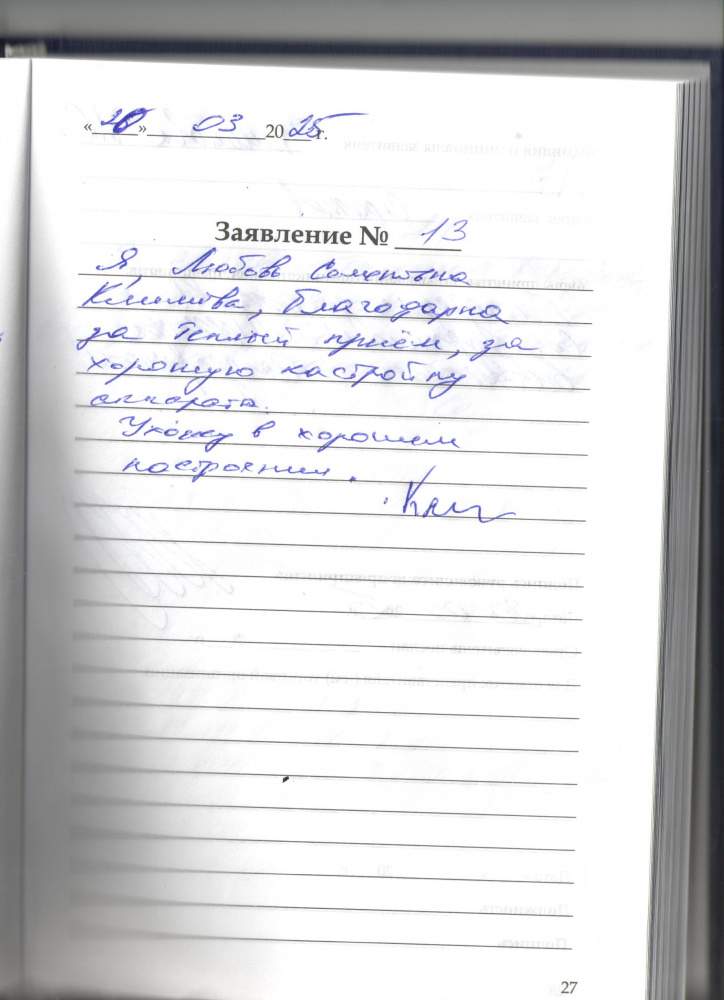 « 26 » 03 20 25 г.
Заявление № 13
Я, Любовь
Климова, благодарна
за теплый приём, за
хорошую настройку
аппарата.
Ухожу в хорошем
настроении.
27